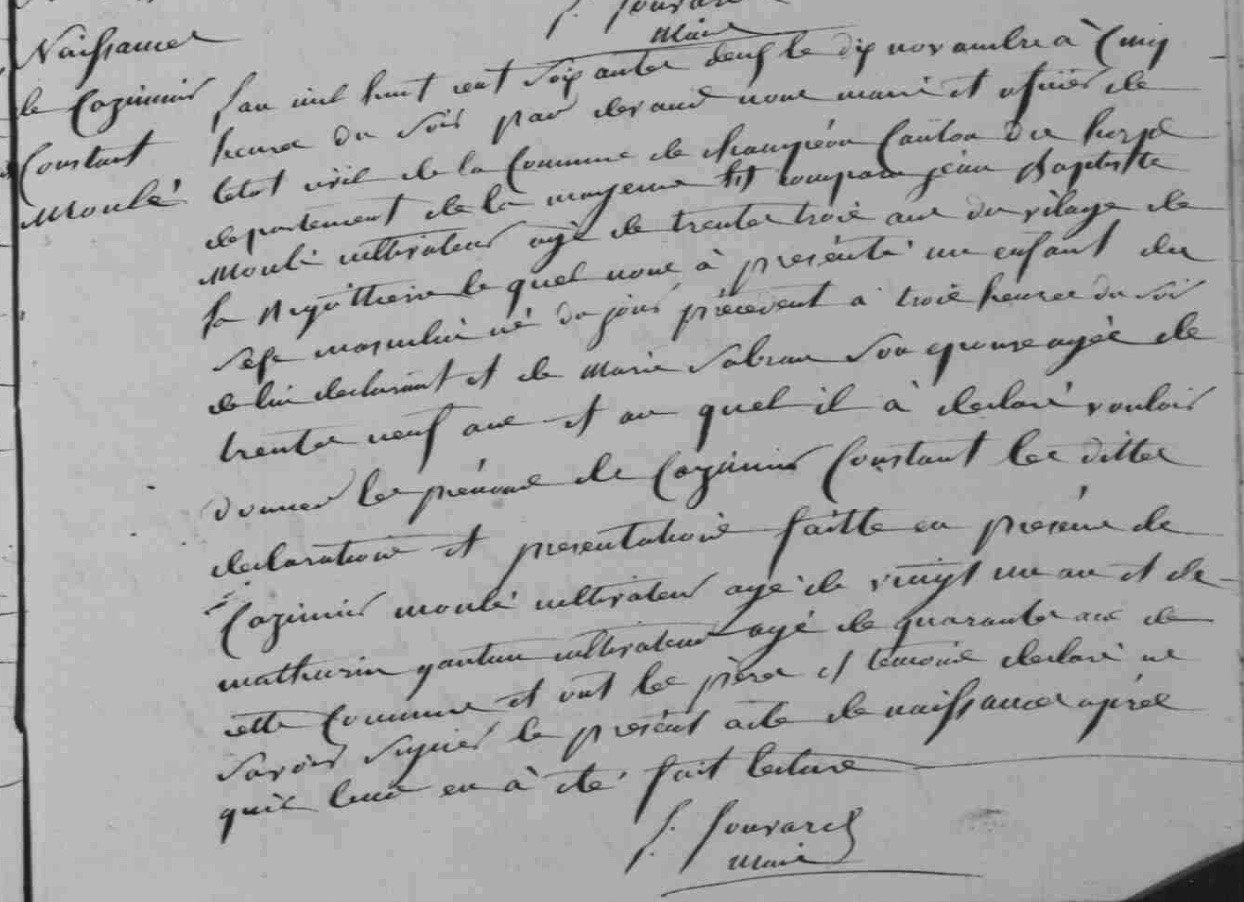 J. Jouvarel
Maire
Naissance
le Cazimir
Constant
Moulé
lan mil huit cent soixante deuf le dix novambre à Cinq
heure du soir par devand nous maire et ofsier de
letat civil de la Commune de champéon Canton du horps
departement de la mayenne est comparu jean Baptiste
Moulé cultivateur agé de trente trois ans du vilage de
la le quel nous à présenté un enfant du
sexe masculin né du jour précédent à trois heures du soir
de lui declarant et de Marie Sabran son epouse agée de
trente neuf ans et au quel il à declaré vouloir
donner les prénoms de Cazimir Constant les dittes
declarations et presentations faitte en presence de
Cazimir moulé cultivateur agé de vingt un an et de
mathurin cultivateur agé de quarante ans de
cette Commune et ont les père et témoins declaré ne
savoir signer le présent acte de naissance après
quil leurs en à été fait lecture
J. Jouvarel
Maire